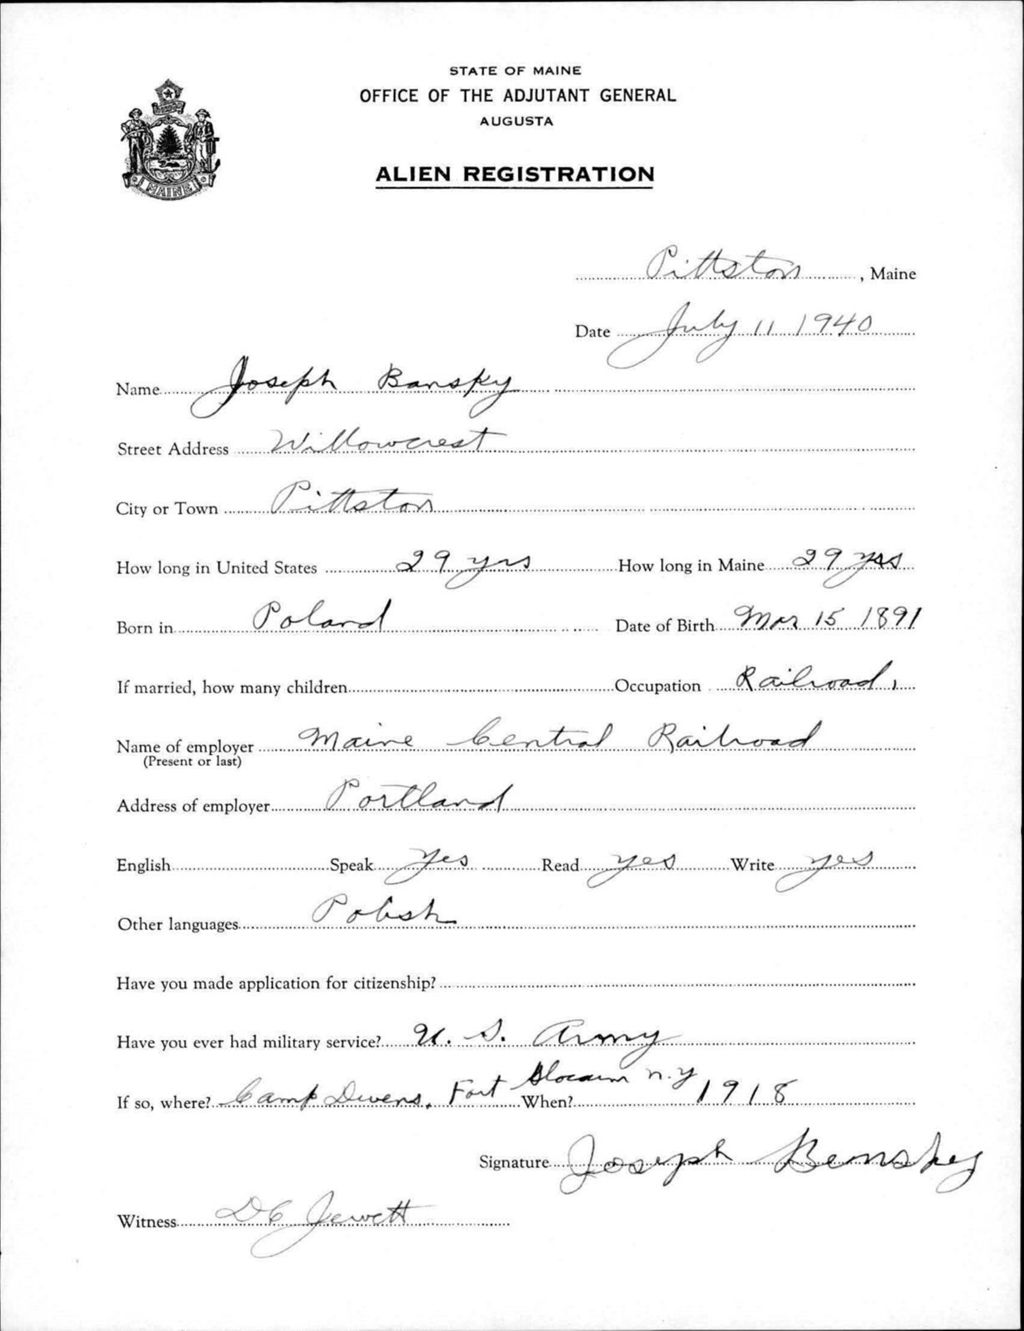 STATE OF MAINE
OFFICE OF THE ADJUTANT GENERAL
AUGUSTA
ALIEN REGISTRATION
MAINE
Pittston, Maine
Date July 11 1940
Name Joseph Bansky
Street Address Willowcrest
City or Town Pittston
How long in United States 29 yrs How long in Maine 29 yrs
Born in Poland Date of Birth Mar 15 1891
If married, how many children Occupation Railroad,
Name of employer Maine Central Railroad
(Present or last)
Address of employer Portland
English Speak Yes Read yes Write yes
Other languages Polish
Have you made application for citizenship?
Have you ever had military service? U. S. Army
If so, where? Camp Devens, Fort Slocum N.Y When? 1918
Signature Joseph Bemskey
Witness D C Jewett